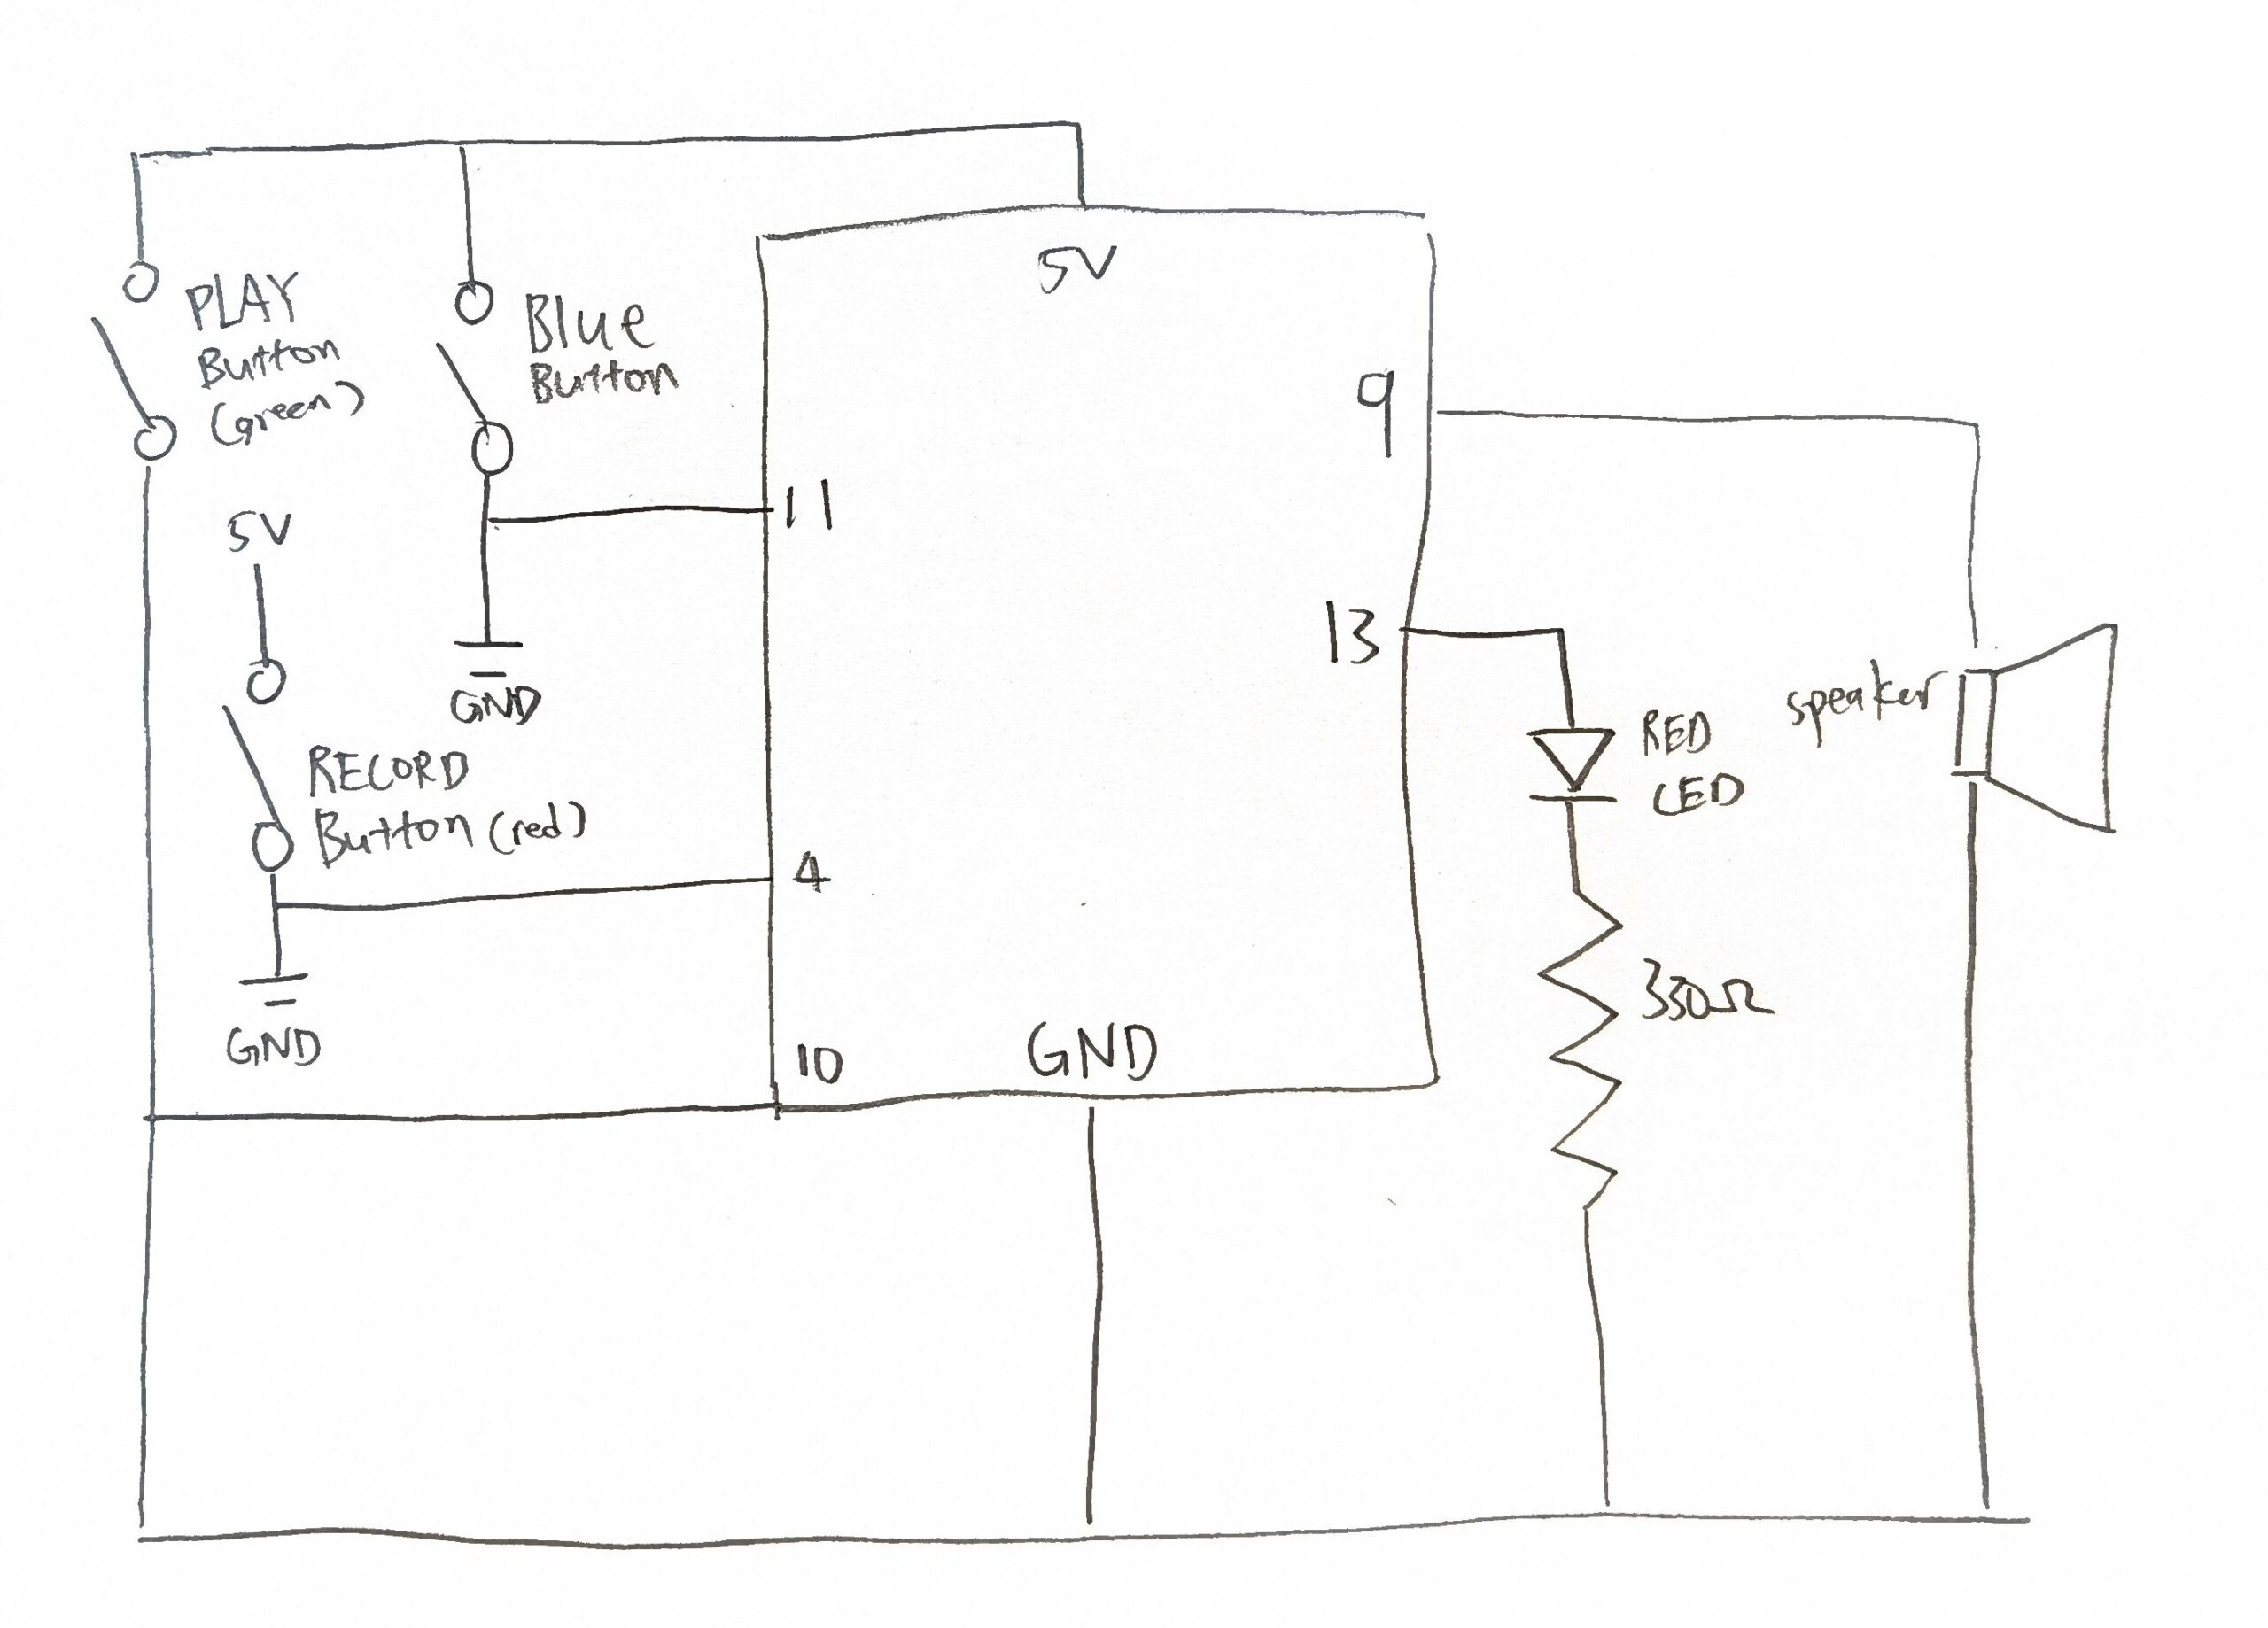 5V
PLAY
Button
(green)
Blue
Button
9
11
5V
13
GND
RED
LED
speaker
RECORD
Button (red)
4
330Ω
GND
10
GND